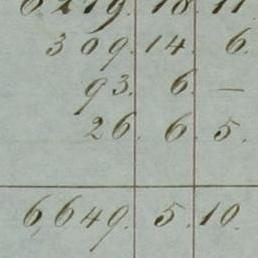 6219. 18. 11.
309. 14. 6.
93. 6. —
26. 6. 5.
6,649. 5. 10.